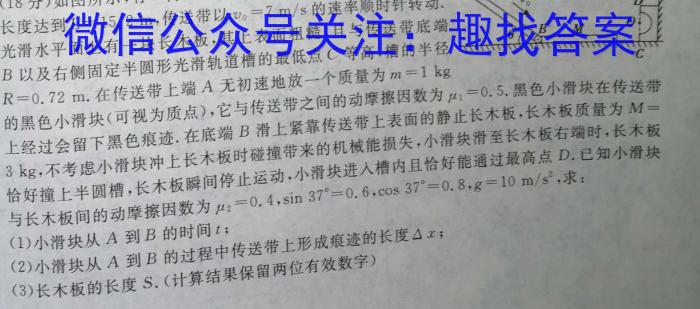 (18分)如图所示,有
长度达到 传送带以v₀=7 m/s的速率顺时针转动.
光滑水平 传送带底端
微信公众号关注:趣找答案
B以及右侧固定半圆形光滑轨道槽的最低点C等高,槽的半径
R=0.72 m.在传送带上端A无初速地放一个质量为m=1 kg
的黑色小滑块(可视为质点),它与传送带之间的动摩擦因数为μ₁=0.5.黑色小滑块在传送带
上经过会留下黑色痕迹.在底端B滑上紧靠传送带上表面的静止长木板,长木板质量为M=
3 kg,不考虑小滑块冲上长木板时碰撞带来的机械能损失,小滑块滑至长木板右端时,长木板
恰好撞上半圆槽,长木板瞬间停止运动,小滑块进入槽内且恰好能通过最高点D.已知小滑块
与长木板间的动摩擦因数为μ₂=0.4,sin 37°=0.6,cos 37°=0.8,g=10 m/s²,求:
(1)小滑块从A到B的时间t;
(2)小滑块从A到B的过程中传送带上形成痕迹的长度Δx;
(3)长木板的长度S.(计算结果保留两位有效数字)
B
C